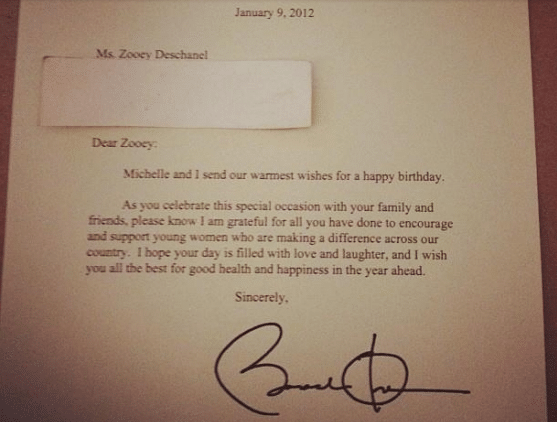 January 9, 2012
Ms. Zooey Deschanel
Dear Zooey:
Michelle and I send our warmest wishes for a happy birthday.
As you celebrate this special occasion with your family and
friends, please know I am grateful for all you have done to encourage
and support young women who are making a difference across our
country. I hope your day is filled with love and laughter, and I wish
you all the best for good health and happiness in the year ahead.
Sincerely,